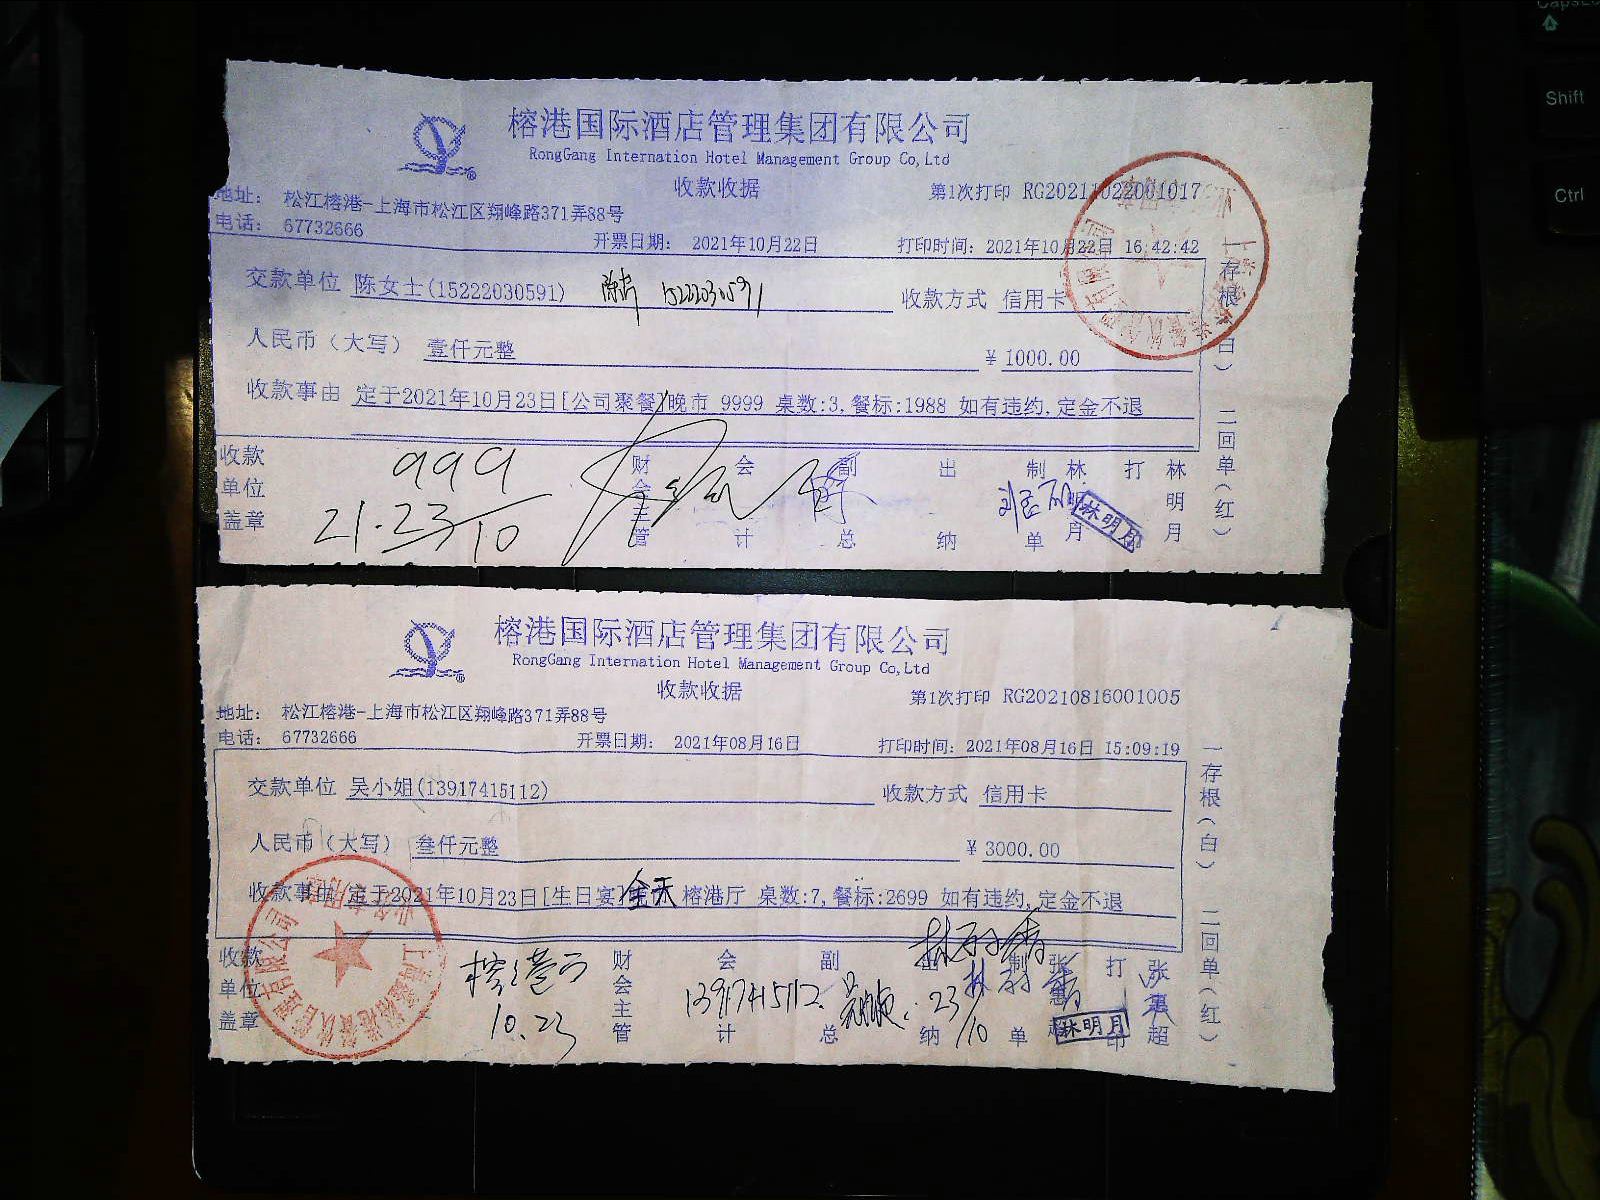 榕港国际酒店管理集团有限公司
RongGang Internation Hotel Management Group Co,Ltd
收款收据
第1次打印 RG20211022001017
地址: 松江榕港-上海市松江区翔峰路371弄88号
电话: 67732666
开票日期: 2021年10月22日
打印时间: 2021年10月22日 16:42:42
交款单位 陈女士(15222030591) 15222030591
收款方式 信用卡
人民币（大写） 壹仟元整
¥ 1000.00
收款事由 定于2021年10月23日[公司聚餐]晚市 9999 桌数:3,餐标:1988 如有违约,定金不退
收款单位盖章
999
21.23/10
财会主管
会计
副总
出纳
制单
林明月
打
林明月
林明月
一存根(白)
二回单(红)
榕港国际酒店管理集团有限公司
RongGang Internation Hotel Management Group Co,Ltd
收款收据
第1次打印 RG20210816001005
地址: 松江榕港-上海市松江区翔峰路371弄88号
电话: 67732666
开票日期: 2021年08月16日
打印时间: 2021年08月16日 15:09:19
交款单位 吴小姐(13917415112)
收款方式 信用卡
人民币（大写） 叁仟元整
¥ 3000.00
收款事由 定于2021年10月23日[生日宴] 全天 榕港厅 桌数:7,餐标:2699 如有违约,定金不退
收款单位盖章
榕港厅
10.23
财会主管
会计
13917415112.
副总
23/10
出纳
制单
张惠超
打印
张惠超
林明月
一存根(白)
二回单(红)
CapsLo
Shift
Ctrl